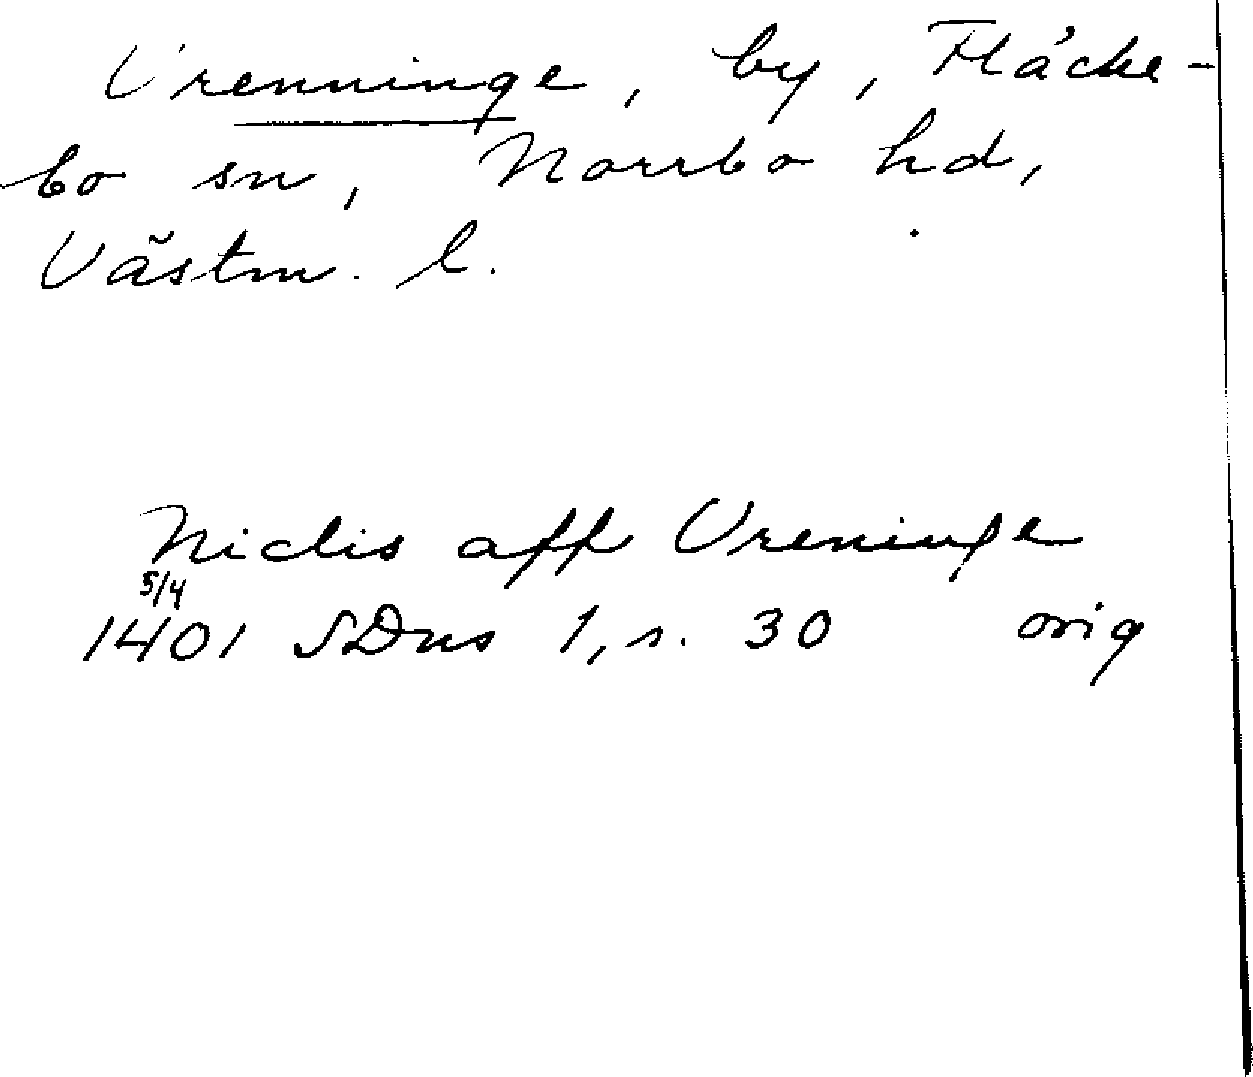 Vrenninge, by, Fläcke-
bo sn, Norrbo hd,
Västm. l.
Niclis aff Vreninge
5/4
1401 SDns 1, s. 30 orig